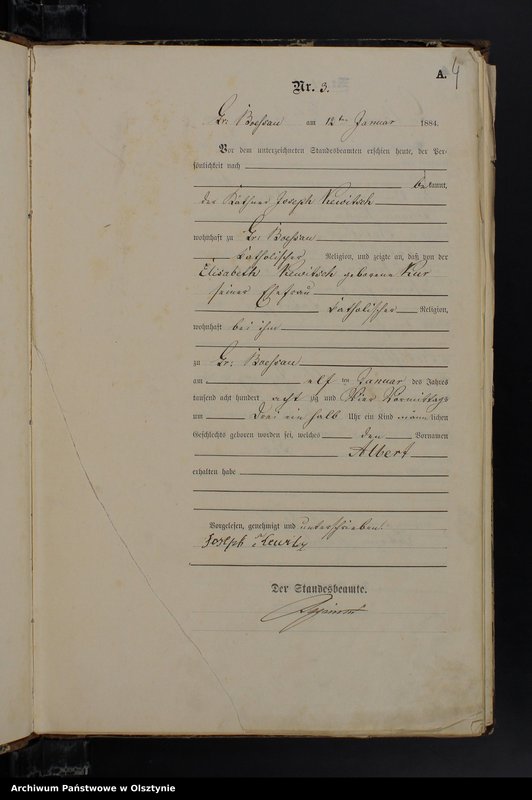 A. 4
Nr. 3.
Gr: Boessau am 12ten Januar 1884.
Vor dem unterzeichneten Standesbeamten erschien heute, der Per-
sönlichkeit nach
bekannt,
der Käthner Joseph Kewitsch
wohnhaft zu Gr: Boessau
Katholischer Religion, und zeigte an, daß von der
Elisabeth Kewitsch geborene Kur
seiner Ehefrau
Katholischer Religion,
wohnhaft bei ihm
zu Gr: Boessau
am elf ten Januar des Jahres
tausend acht hundert acht zig und Vier Vormittags
um Drei ein halb Uhr ein Kind männlichen
Geschlechts geboren worden sei, welches den Vornamen
Albert
erhalten habe
Vorgelesen, genehmigt und unterschrieben:
Joseph
Der Standesbeamte.
Archiwum Państwowe w Olsztynie